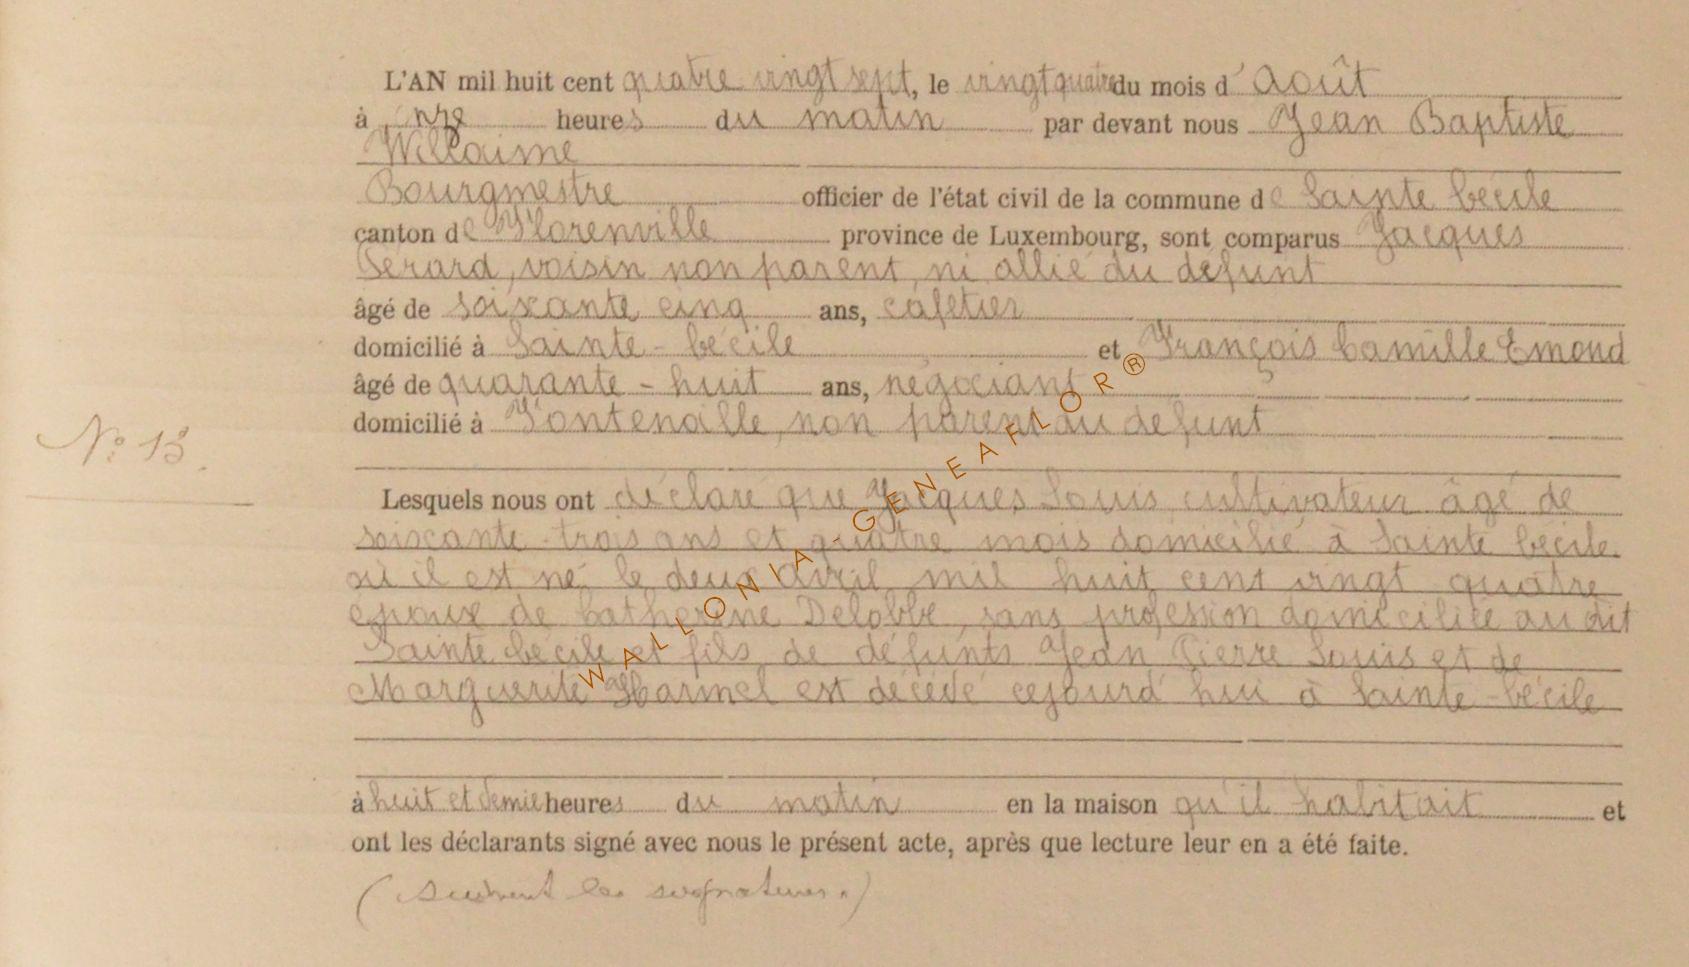 L'AN mil huit cent quatre vingt sept, le vingt quatre du mois d' Août
à onze heures du matin par devant nous Jean Baptiste
Willaime
Bourgmestre officier de l'état civil de la commune de Sainte Cécile
canton de Florenville province de Luxembourg, sont comparus Jacques
Gérard, voisin non parent, ni allié du défunt
âgé de soixante cinq ans, cafetier
domicilié à Sainte-Cécile et François Camille Emond
âgé de quarante-huit ans, négociant
domicilié à Fontenoille, non parent au défunt
N° 13.
Lesquels nous ont déclaré que Jacques Louis cultivateur âgé de
soixante-trois ans et quatre mois domicilié à Sainte Cécile
où il est né le deux avril mil huit cent vingt quatre
époux de Catherine Delobbe, sans profession domiciliée au dit
Sainte Cécile et fils de défunts Jean Pierre Louis et de
Marguerite Harmel est décédé cejourd'hui à Sainte-Cécile
à huit et demie heures du matin en la maison qu'il habitait et
ont les déclarants signé avec nous le présent acte, après que lecture leur en a été faite.
(Suivent les signatures.)
WALLONIA-GENEAFLOR®